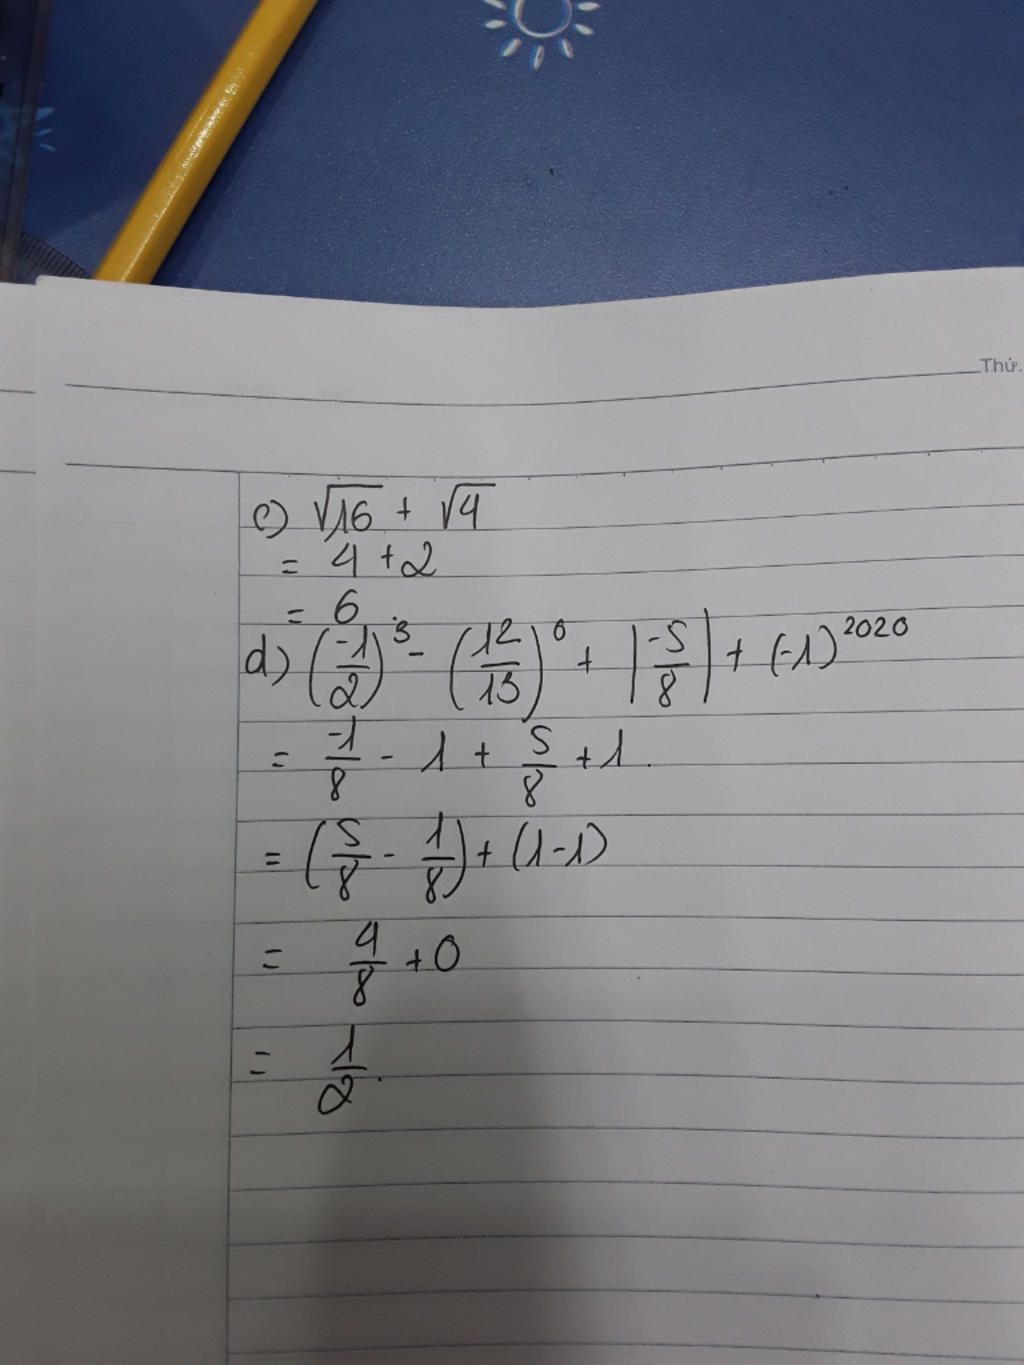 Thứ.
c) √16 + √4
= 4 + 2
= 6
d) (-1/2)³ - (12/13)⁰ + |-5/8| + (-1)²⁰²⁰
= -1/8 - 1 + 5/8 + 1.
= (5/8 - 1/8) + (1-1)
= 4/8 + 0
= 1/2.